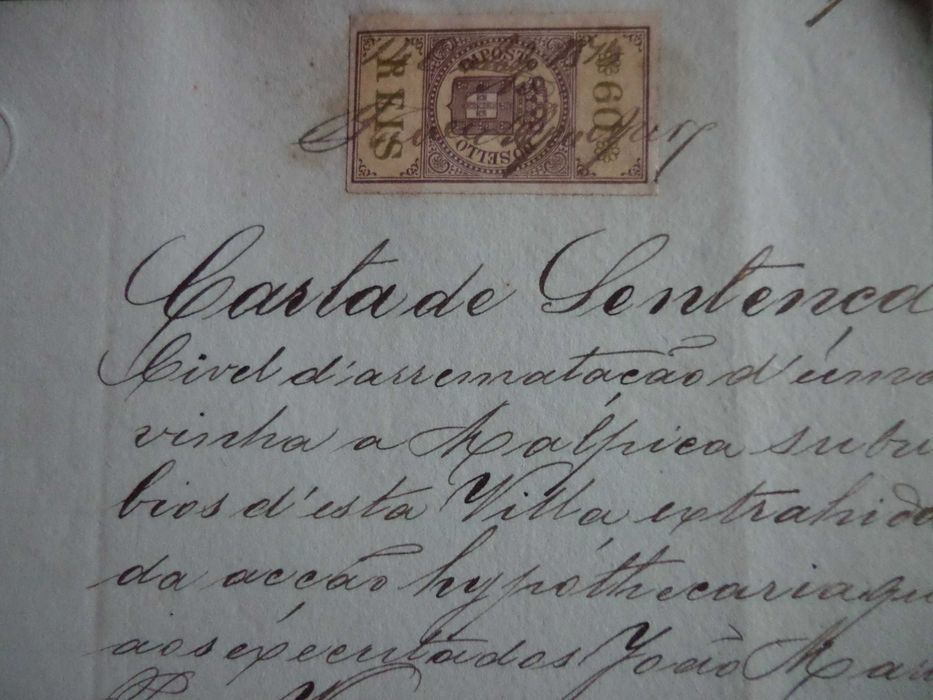 REIS
IMPOSTO DO SELLO
60
Carta de Sentença
Civel d'arrematação d'úma
vinha a Malpica subur
bios d'esta Villa extrahida
da acção hypóthecaria qu
aos éxecutados João Mar